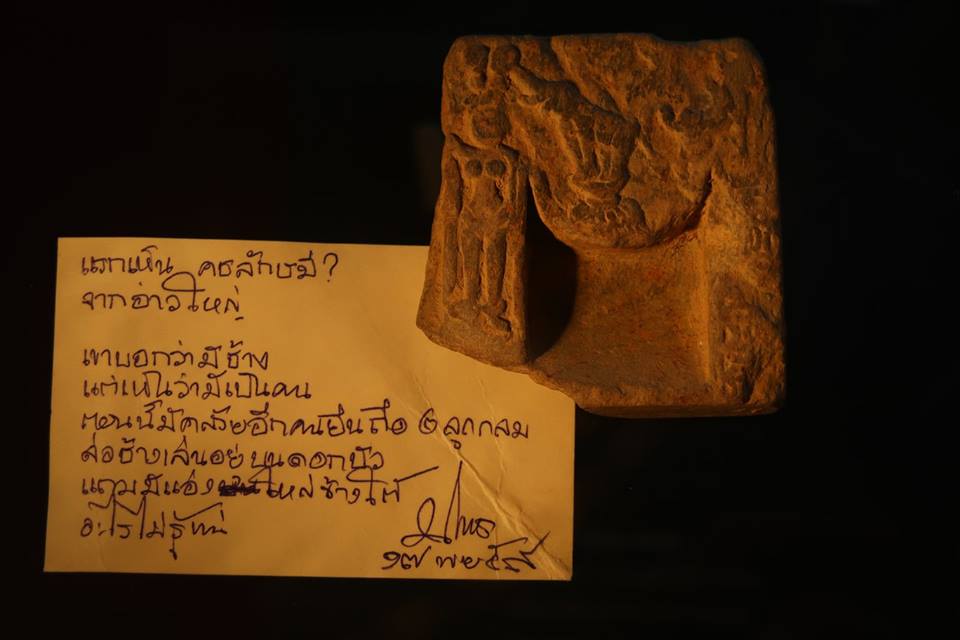 แรกเห็น คชลักษมี?
จากอ่าวใหญ่
เขาบอกว่ามีช้าง
แต่เห็นว่ามันเป็นคน
ตอนนี้มีคล้ายอีกคนยืนถือ ลูกกลม
ล่อช้างเล่นอยู่บนดอกบัว
แถมมีแอ่ง ใหญ่ข้างใต้
อะไรไม่รู้แน่
๑๗ พย